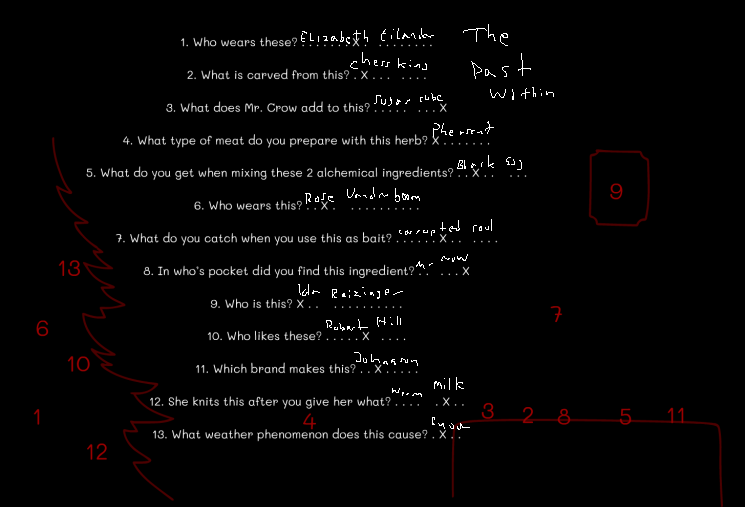 1. Who wears these? Elizabeth Eilander The
2. What is carved from this? chess king Past
Within
3. What does Mr. Crow add to this? sugar cube
4. What type of meat do you prepare with this herb? Pheasant
5. What do you get when mixing these 2 alchemical ingredients? Black egg
9
6. Who wears this? Rose Vanderboom
7. What do you catch when you use this as bait? corrupted soul
13 8. In who's pocket did you find this ingredient? mr
9. Who is this? Ida Reiziger
7
6 10. Who likes these? Robert Hill
10 11. Which brand makes this? Johnsson
12. She knits this after you give her what? warm milk
1 4 3 2 8 5 11
13. What weather phenomenon does this cause? Snow
12